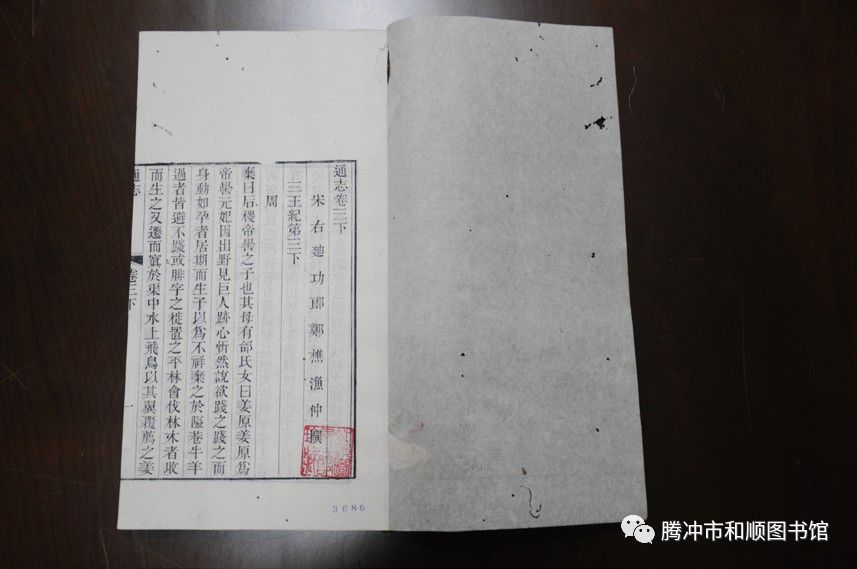 通志卷三下
宋右迪功郎鄭樵漁仲撰
三王紀第三下
周
棄曰后稷帝嚳之子也其母有邰氏女曰姜原姜原爲
帝嚳元妃因出野見巨人跡心忻然說欲踐之踐之而
身動如孕者居期而生子以爲不祥棄之於隘巷牛羊
過者皆避不踐或腓字之徙置之平林會伐林木者收
而生之又遷而寘於渠中冰上飛鳥以其翼覆薦之姜
通志
卷三下
一
3686
腾冲市和顺图书馆